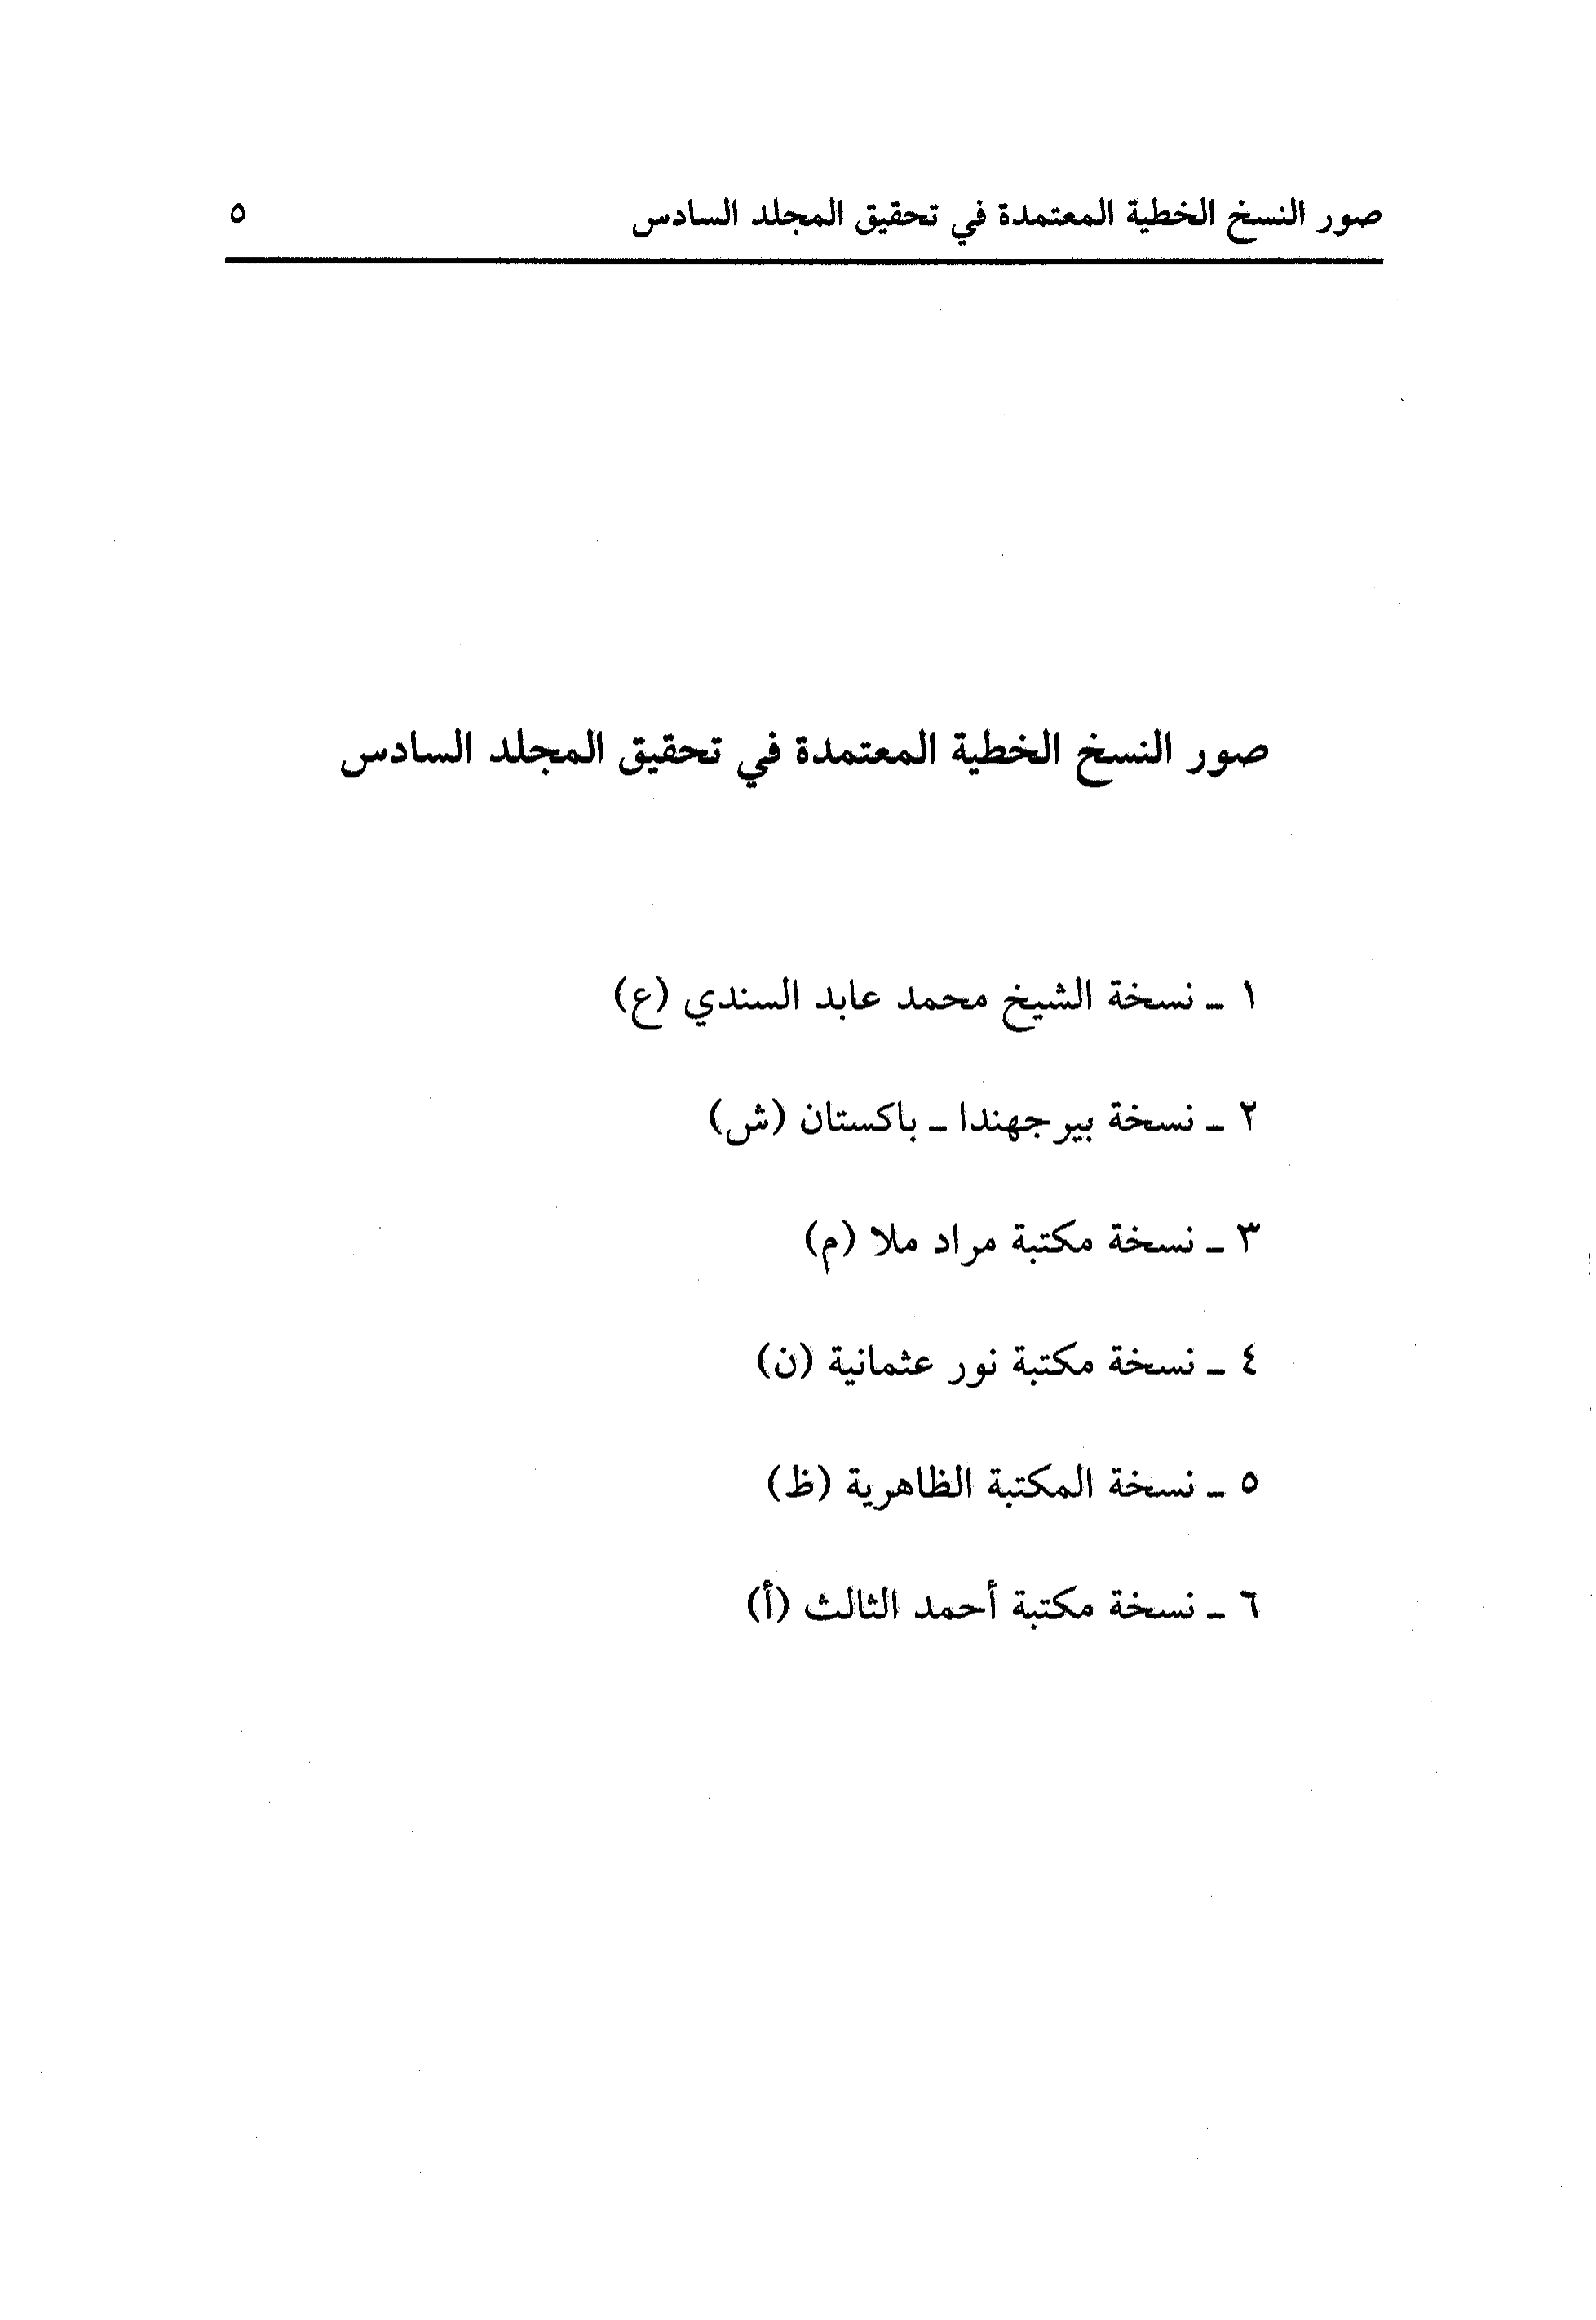 صور النسخ الخطية المعتمدة في تحقيق المجلد السادس ٥
صور النسخ الخطية المعتمدة في تحقيق المجلد السادس
١ ـ نسخة الشيخ محمد عابد السندي (ع)
٢ ـ نسخة بيرجهندا ـ باكستان (ش)
٣ ـ نسخة مكتبة مراد ملا (م)
٤ ـ نسخة مكتبة نور عثمانية (ن)
٥ ـ نسخة المكتبة الظاهرية (ظ)
٦ ـ نسخة مكتبة أحمد الثالث (أ)